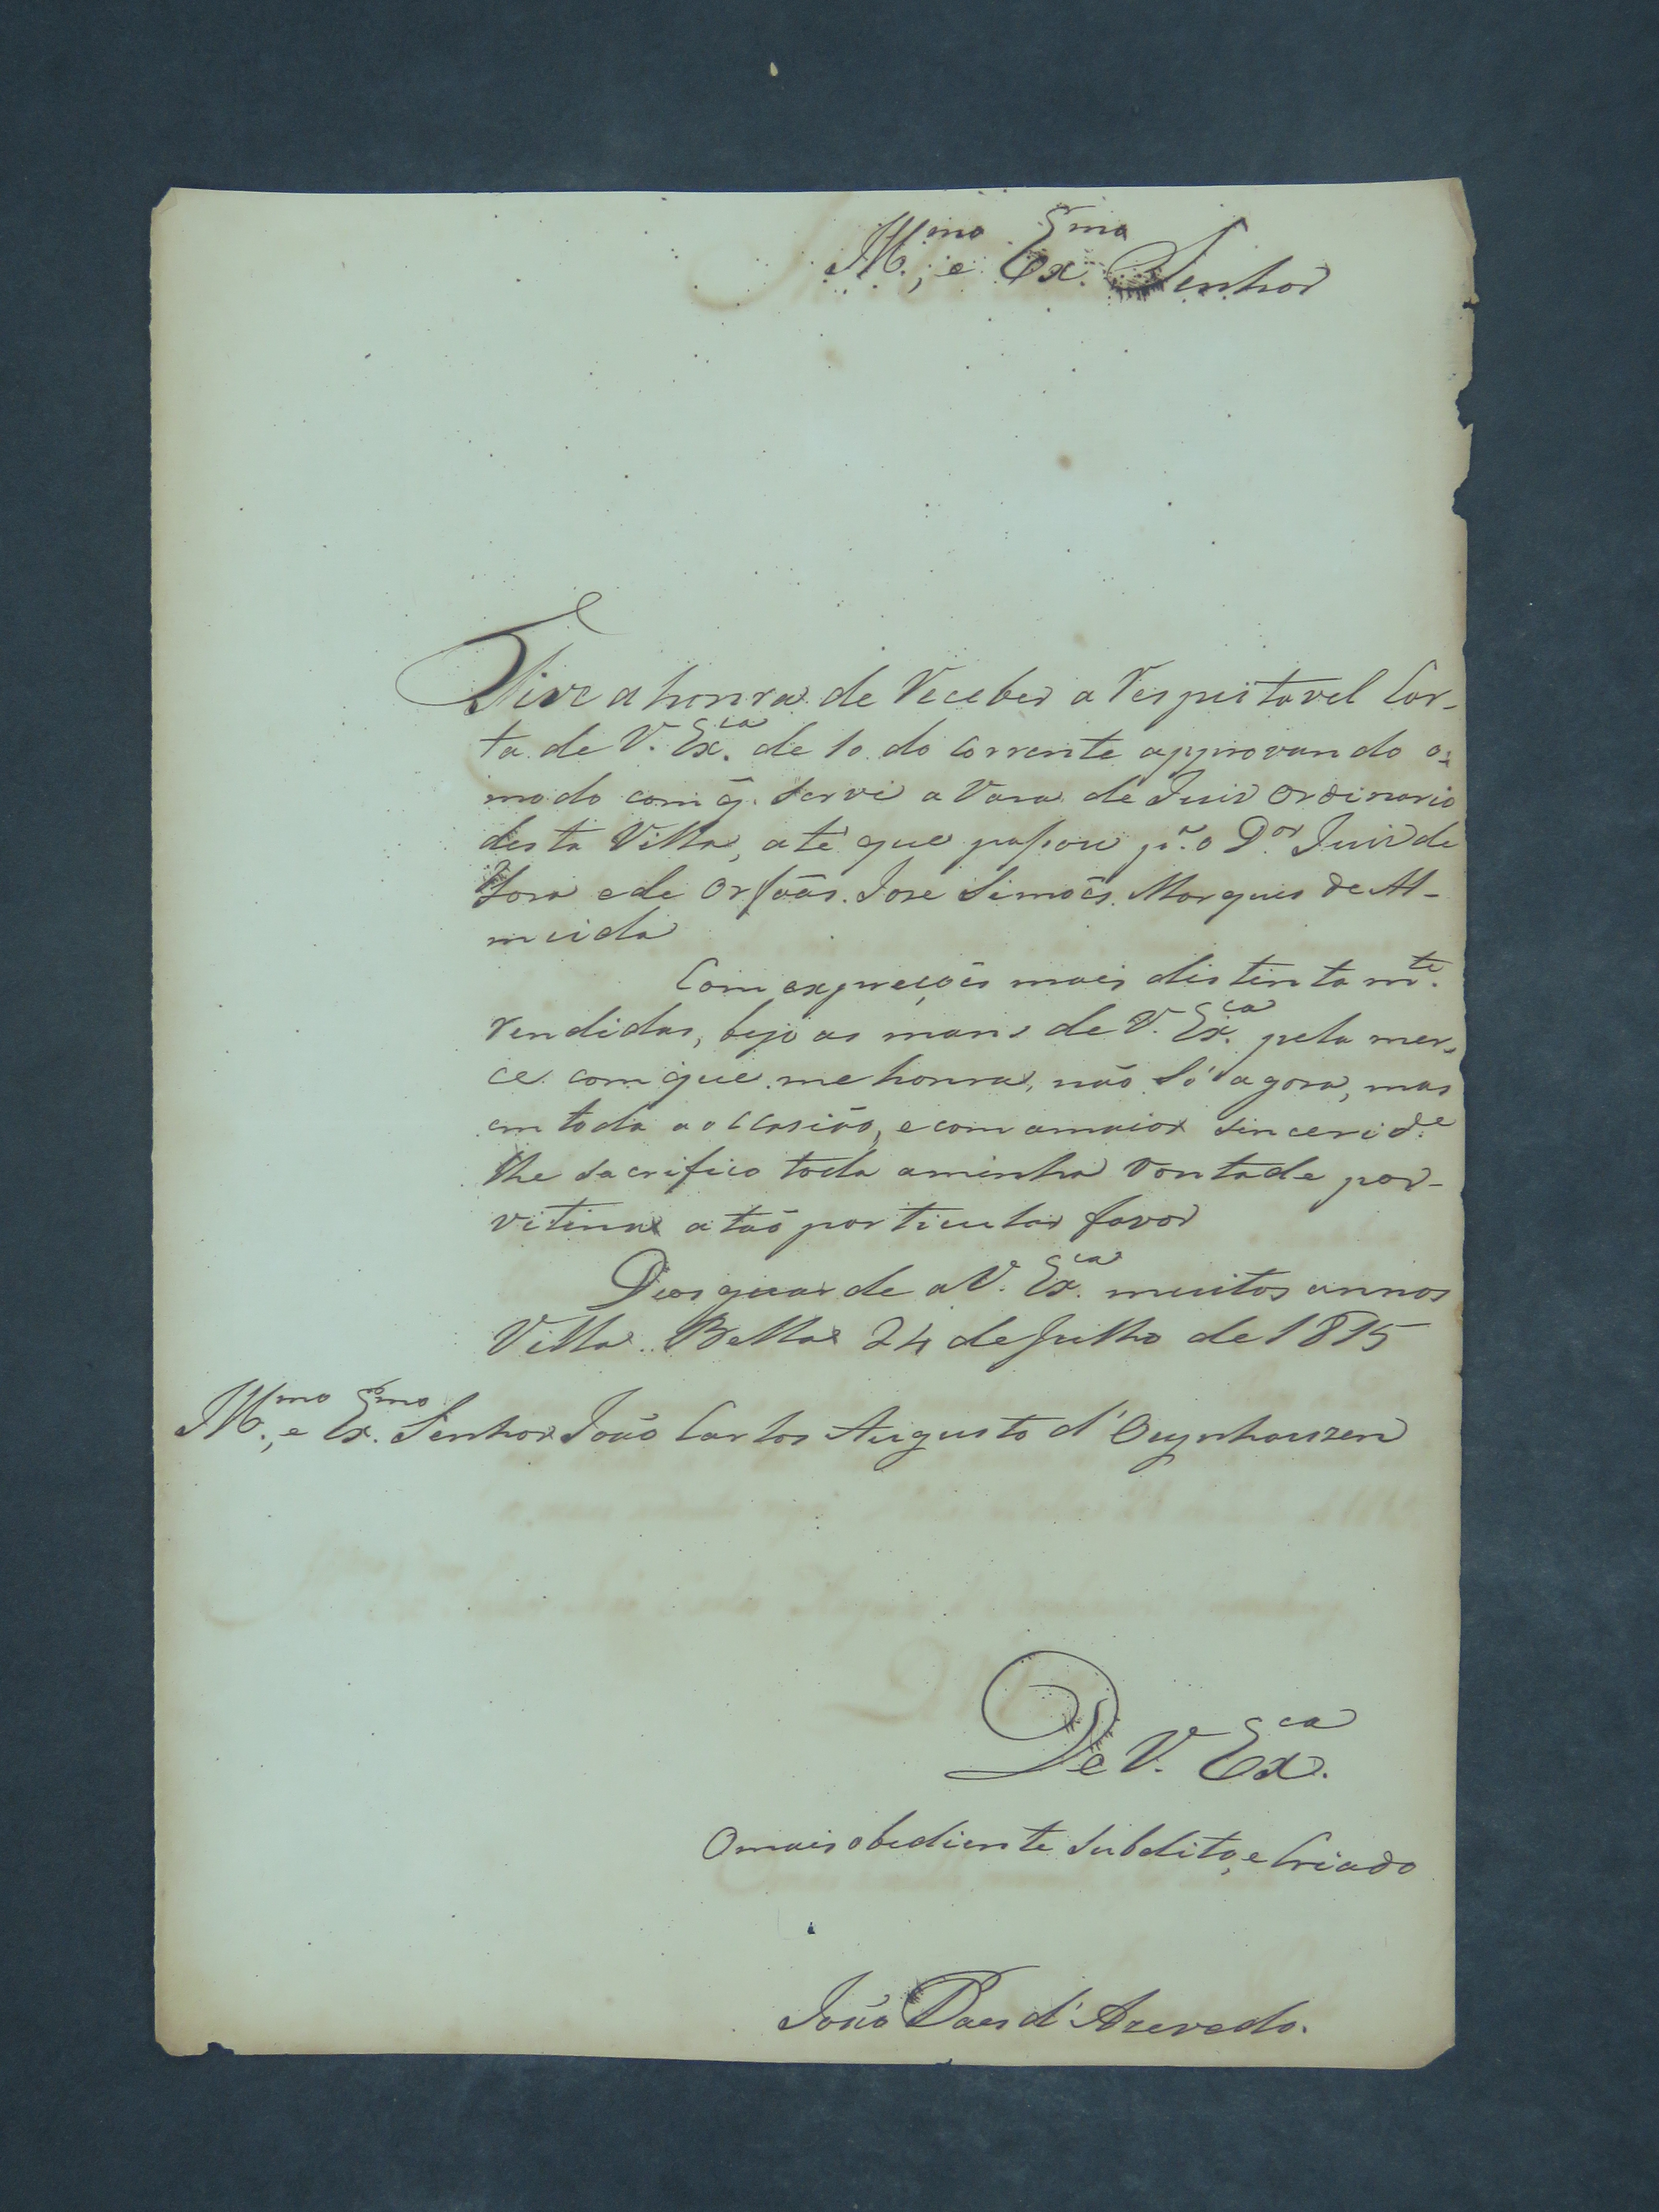 Ill.mo, e Ex.mo Senhor
Tive a honra de receber a respeitavel Car-
ta de V. Ex.cia de 10 do corrente approvando o
modo com q̃. servi a Vara de Juiz Ordinario
desta Villa, até que passou p.a o D.or Juiz de
Fora e de Orfaõs. Jose Simoẽs Marques de Al-
meida
Com expreçoẽs mais distintam.te
rendidas, bejo as maõs de V. Ex.cia pela mer-
ce com que me honra, não só agora, mas
em toda a occasião, e com a maior sincerid.e
lhe sacrifico toda a minha vontade por
vitima a taõ particular favor
Deos guarde a V. Ex.cia muitos annos
Villa Bella 24 de Julho de 1815
Ill.mo, e Ex.mo Senhor João Carlos Augusto d'Oeynhauzen
De V. Ex.ca
O mais obediente subdito, e Criado
João Paes d'Azevedo.